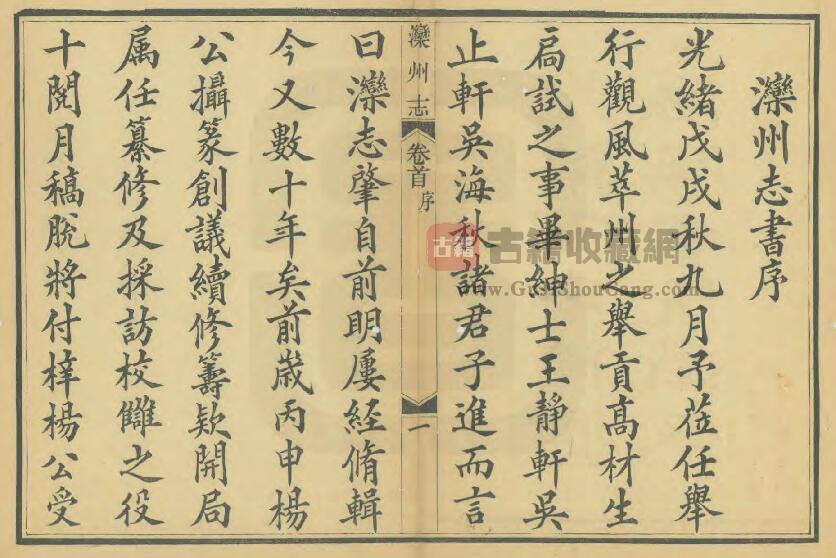 灤州志書序
光緒戊戌秋九月予蒞任舉
行觀風萃州之舉貢高材生
扃試之事畢紳士王靜軒吳
止軒吳海秋諸君子進而言
灤州志
卷首
序
一
曰灤志肇自前明屢経脩輯
今又數十年矣前嵗丙申楊
公攝篆創議續修籌欵開局
属任纂修及採訪校讎之役
十閱月稿脫將付梓楊公受
古籍
古籍收藏網
www.GujiShouCang.com